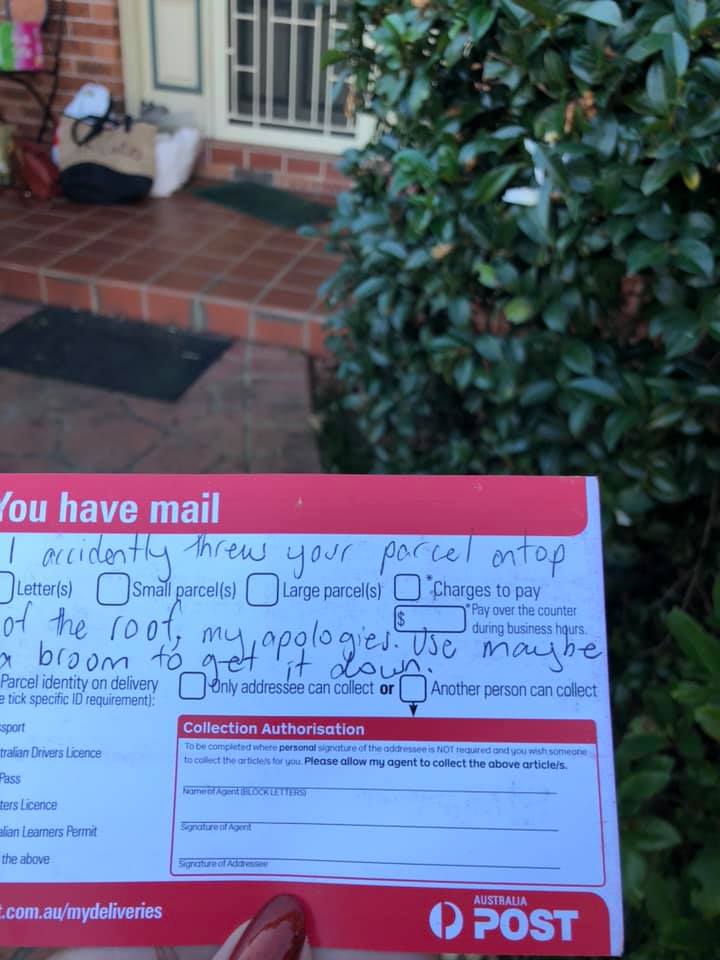 You have mail
I accidently threw your parcel ontop
Letter(s) Small parcel(s) Large parcel(s) *Charges to pay
$ *Pay over the counter
during business hours.
of the roof, my apologies. Use maybe
a broom to get it down.
Parcel identity on delivery
e tick specific ID requirement):
Only addressee can collect or Another person can collect
sport
tralian Drivers Licence
Pass
ters Licence
alian Learners Permit
the above
Collection Authorisation
To be completed where personal signature of the addressee is NOT required and you wish someone
to collect the article/s for you. Please allow my agent to collect the above article/s.
Name of Agent (BLOCK LETTERS)
Signature of Agent
Signature of Addressee
.com.au/mydeliveries
AUSTRALIA
POST